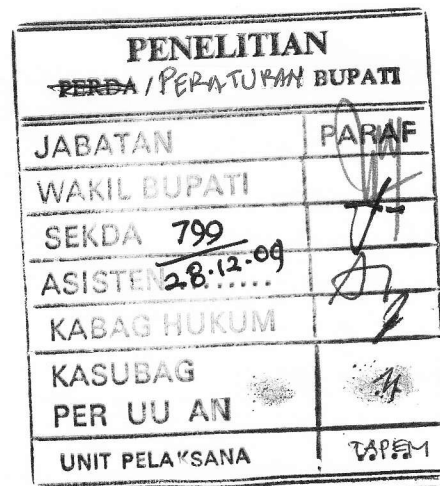 PENELITIAN
PERDA / PERATURAN BUPATI
JABATAN PARAF
WAKIL BUPATI
SEKDA 799
ASISTEN 28.12.09 ......
KABAG HUKUM
KASUBAG
PER UU AN
UNIT PELAKSANA TAPEM